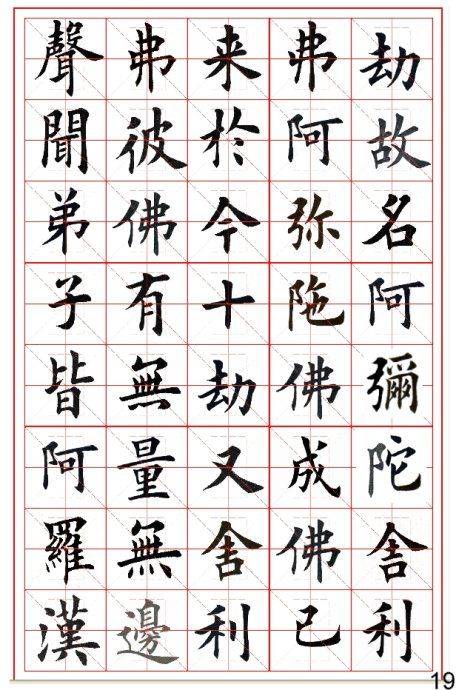 劫故名阿彌陀舍利
弗阿弥陁佛成佛已
来於今十劫又舍利
弗彼佛有無量無邊
聲聞弟子皆阿羅漢
19